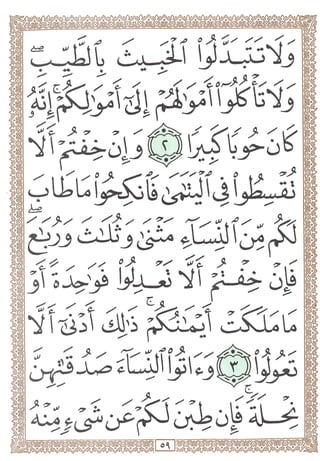 وَلَا تَتَبَدَّلُوا۟ ٱلْخَبِيثَ بِٱلطَّيِّبِ ۖ
وَلَا تَأْكُلُوٓا۟ أَمْوَٰلَهُمْ إِلَىٰٓ أَمْوَٰلِكُمْ ۚ إِنَّهُۥ
كَانَ حُوبًا كَبِيرًا ٢ وَإِنْ خِفْتُمْ أَلَّا
تُقْسِطُوا۟ فِى ٱلْيَتَٰمَىٰ فَٱنكِحُوا۟ مَا طَابَ
لَكُم مِّنَ ٱلنِّسَآءِ مَثْنَىٰ وَثُلَٰثَ وَرُبَٰعَ ۖ
فَإِنْ خِفْتُمْ أَلَّا تَعْدِلُوا۟ فَوَٰحِدَةً أَوْ
مَا مَلَكَتْ أَيْمَٰنُكُمْ ۚ ذَٰلِكَ أَدْنَىٰٓ أَلَّا
تَعُولُوا۟ ٣ وَءَاتُوا۟ ٱلنِّسَآءَ صَدُقَٰتِهِنَّ
نِحْلَةً ۚ فَإِن طِبْنَ لَكُمْ عَن شَىْءٍ مِّنْهُ
٥٩